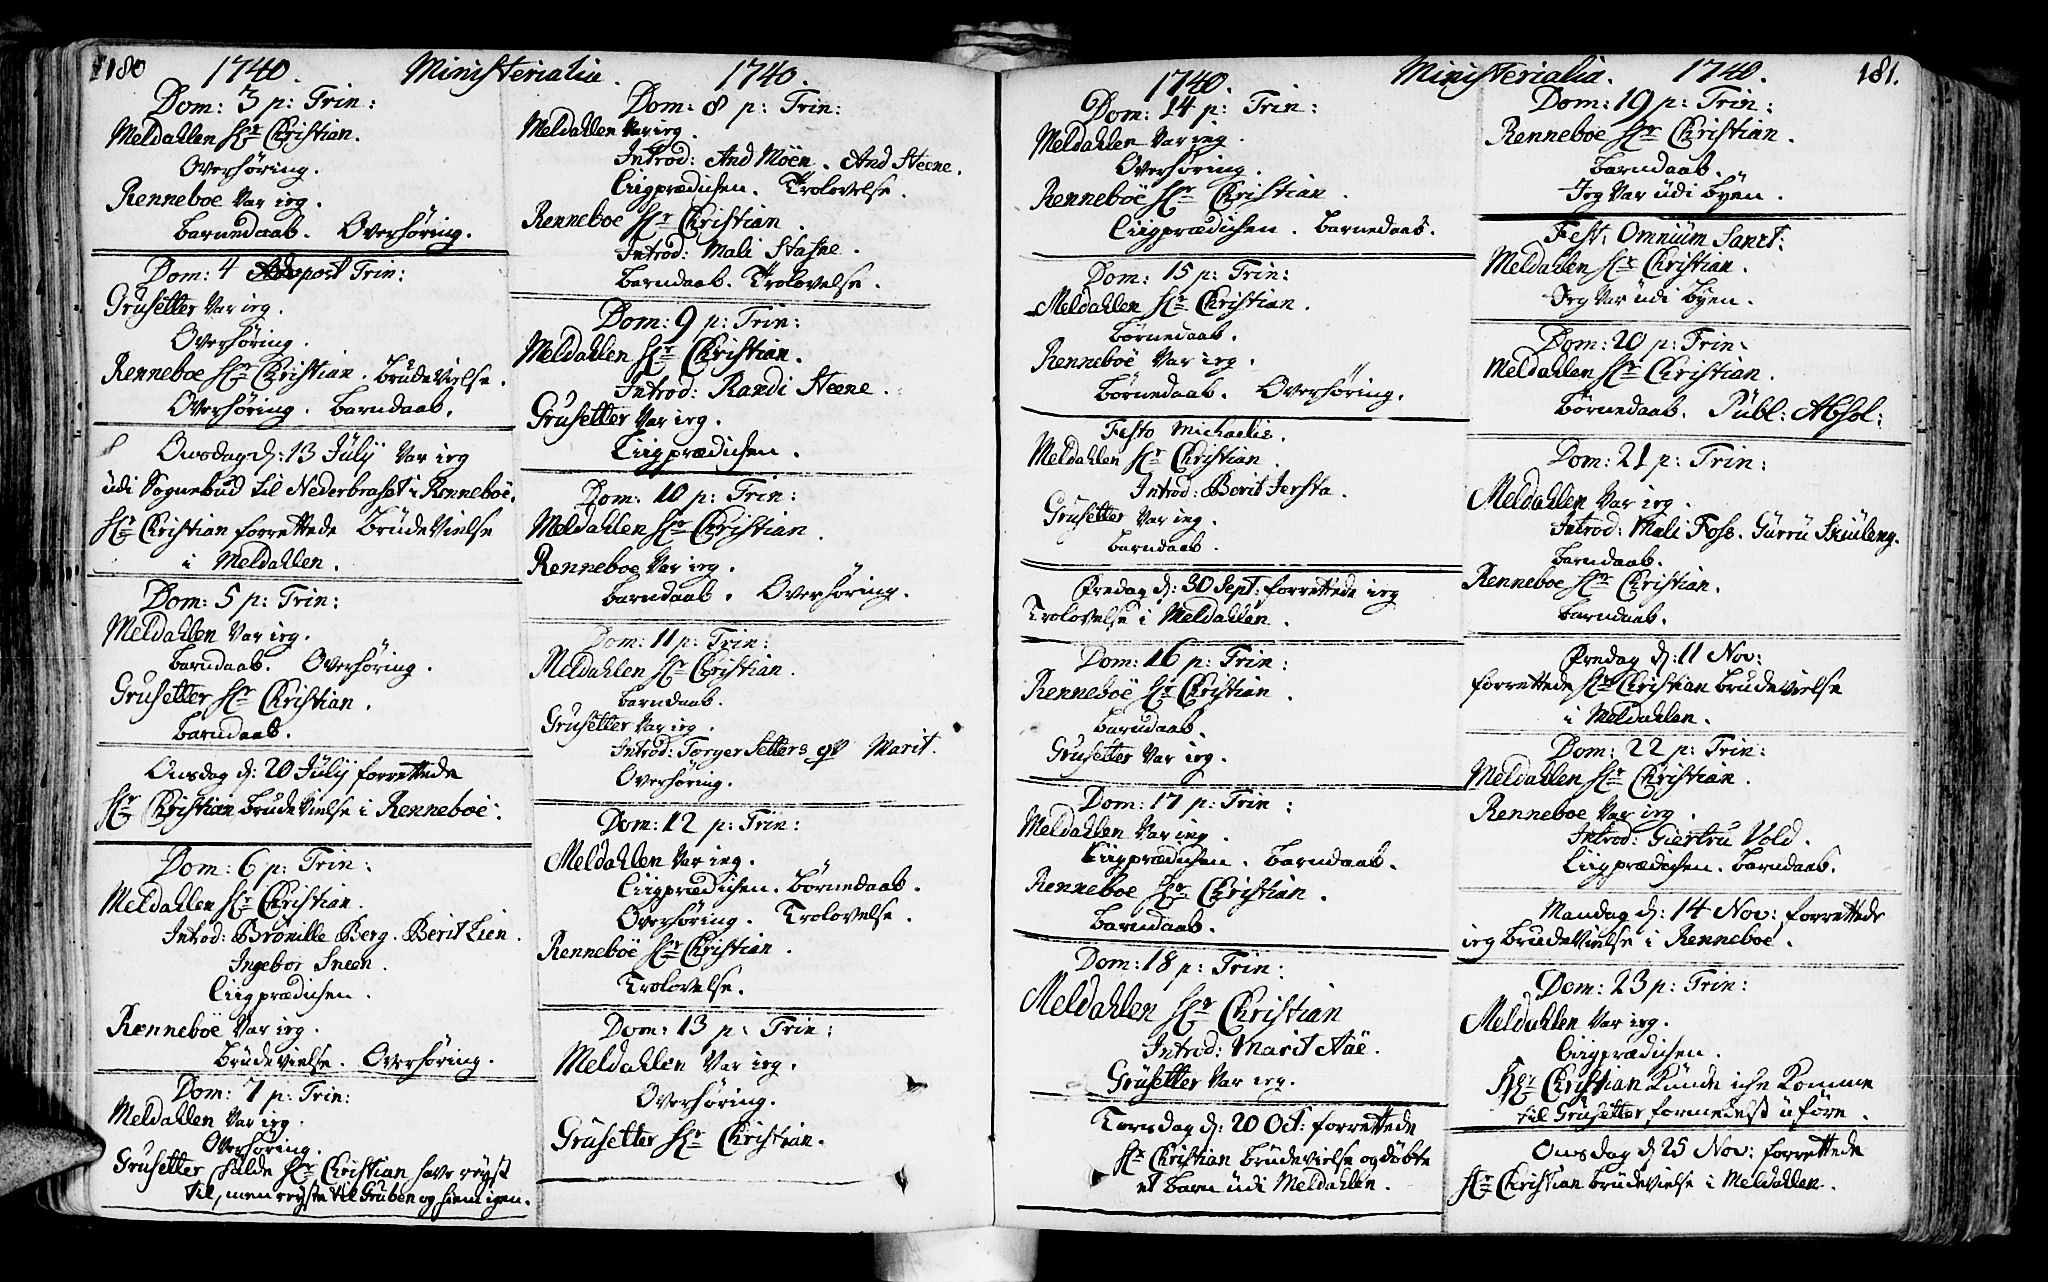 180 1740. Ministerialia. 1740.
Dom: 3 p: Trin:
Meldahlen Hr Christian.
Overhøring.
Renneboe Var ieg.
Barnedaab. Overhøring.
Dom: 4 post Trin:
Grusetter Var ieg.
Overhøring.
Renneboe Hr Christian. Brudevielse.
Overhøring. Barndaab.
Onsdag d: 13 Julij Var ieg
udi Sognebud til Nederbraset i Renneboe.
Hr Christian forrettede Brudevielse
i Meldahlen.
Dom: 5 p: Trin:
Meldahlen Var ieg.
Barndaab. Overhøring.
Grusetter Hr Christian.
Barndaab.
Onsdag d: 20 Julij forrettede
Hr Christian Brudevielse i Renneboe.
Dom: 6 p: Trin:
Meldahlen Hr Christian.
Introd: Brönille Berg. Berit Lien.
Ingebor Sneen.
Liigprædichen.
Renneböe Var ieg.
Brüdevielse. Overhøring.
Dom: 7 p: Trin:
Meldahlen Var ieg.
Overhøring.
Grusetter skulde Hr Christian have reyst
til, men reyste til Gruben og hiem igen.
Dom: 8 p: Trin:
Meldahlen Var ieg.
Introd: And Möen. And Steene.
Liigprædichen. Trolovelse.
Renneboe Hr Christian.
Introd: Mali Stafne.
Barndaab. Trolovelse.
Dom: 9 p: Trin:
Meldahlen Hr Christian.
Introd: Randi Steene.
Grusetter Var ieg.
Liigprædichen.
Dom: 10 p: Trin:
Meldahlen Hr Christian.
Renneboe Var ieg.
Barndaab. Overhøring.
Dom: 11 p: Trin:
Meldahlen Hr Christian.
Barndaab.
Grusetter Var ieg.
Introd: Torger Setters qv Marit.
Overhøring.
Dom: 12 p: Trin:
Meldahlen Var ieg.
Liigprædichen. Börnedaab.
Overhøring. Trolovelse.
Renneböe Hr Christian.
Trolovelse.
Dom: 13 p: Trin:
Meldahlen Var ieg.
Overhøring.
Grüsetter Hr Christian.
1740. Ministerialia. 1740. 181.
Dom: 14 p: Trin:
Meldahlen Var ieg.
Overhøring.
Renneböe Hr Christian.
Liigprædichen. Barnedaab.
Dom: 15 p: Trin:
Meldahlen Hr Christian.
Börnedaab.
Renneböe Var ieg.
Börnedaab. Overhøring.
Festo Michaelis.
Meldahlen Hr Christian.
Introd: Berit Jersta.
Grüsetter Var ieg.
Barndaab.
Fredag d: 30 Sept: forrettede ieg
Trolovelse i Meldahlen.
Dom: 16 p: Trin:
Renneböe Hr Christian.
Barndaab.
Grüsetter Var ieg.
Dom: 17 p: Trin:
Meldahlen Var ieg.
Liigprædichen. Barndaab.
Renneboe Hr Christian.
Barndaab.
Dom: 18 p: Trin:
Meldahlen Hr Christian
Introd: Marit Aäe.
Grüsetter Var ieg.
Torsdag d: 20 Oct: forrettede
Hr Christian Brüdevielse og döbte
et Barn udi Meldahlen.
Dom: 19 p: Trin:
Renneboe Hr Christian.
Barndaab.
Jeg Var üdi Byen.
Fest: Omnium Sanct:
Meldahlen Hr Christian.
Jeg Var üdi Byen.
Dom: 20 p: Trin:
Meldahlen Hr Christian.
Börnedaab. Pübl: Absol:
Dom: 21 p: Trin:
Meldahlen Var ieg.
Introd: Mali Foss. Gürrü
Barndaab.
Renneboe Hr Christian.
Barndaab.
Fredag d: 11 Nov:
forrettede Hr Christian Brudevielse
i Meldahlen.
Dom: 22 p: Trin:
Meldahlen Hr Christian.
Renneboe Var ieg.
Introd: Giertru Vold.
Liigprædichen. Barndaab.
Mandag d: 14 Nov: forrettede
ieg Brudevielse i Renneboe.
Dom: 23 p: Trin:
Meldahlen Var ieg.
Liigprædichen.
Hr Christian künde iche komme
til Grüsetter formedelst üföre.
Onsdag d 25 Nov: forrettede
Hr Christian Brüdevielse i Meldahlen.